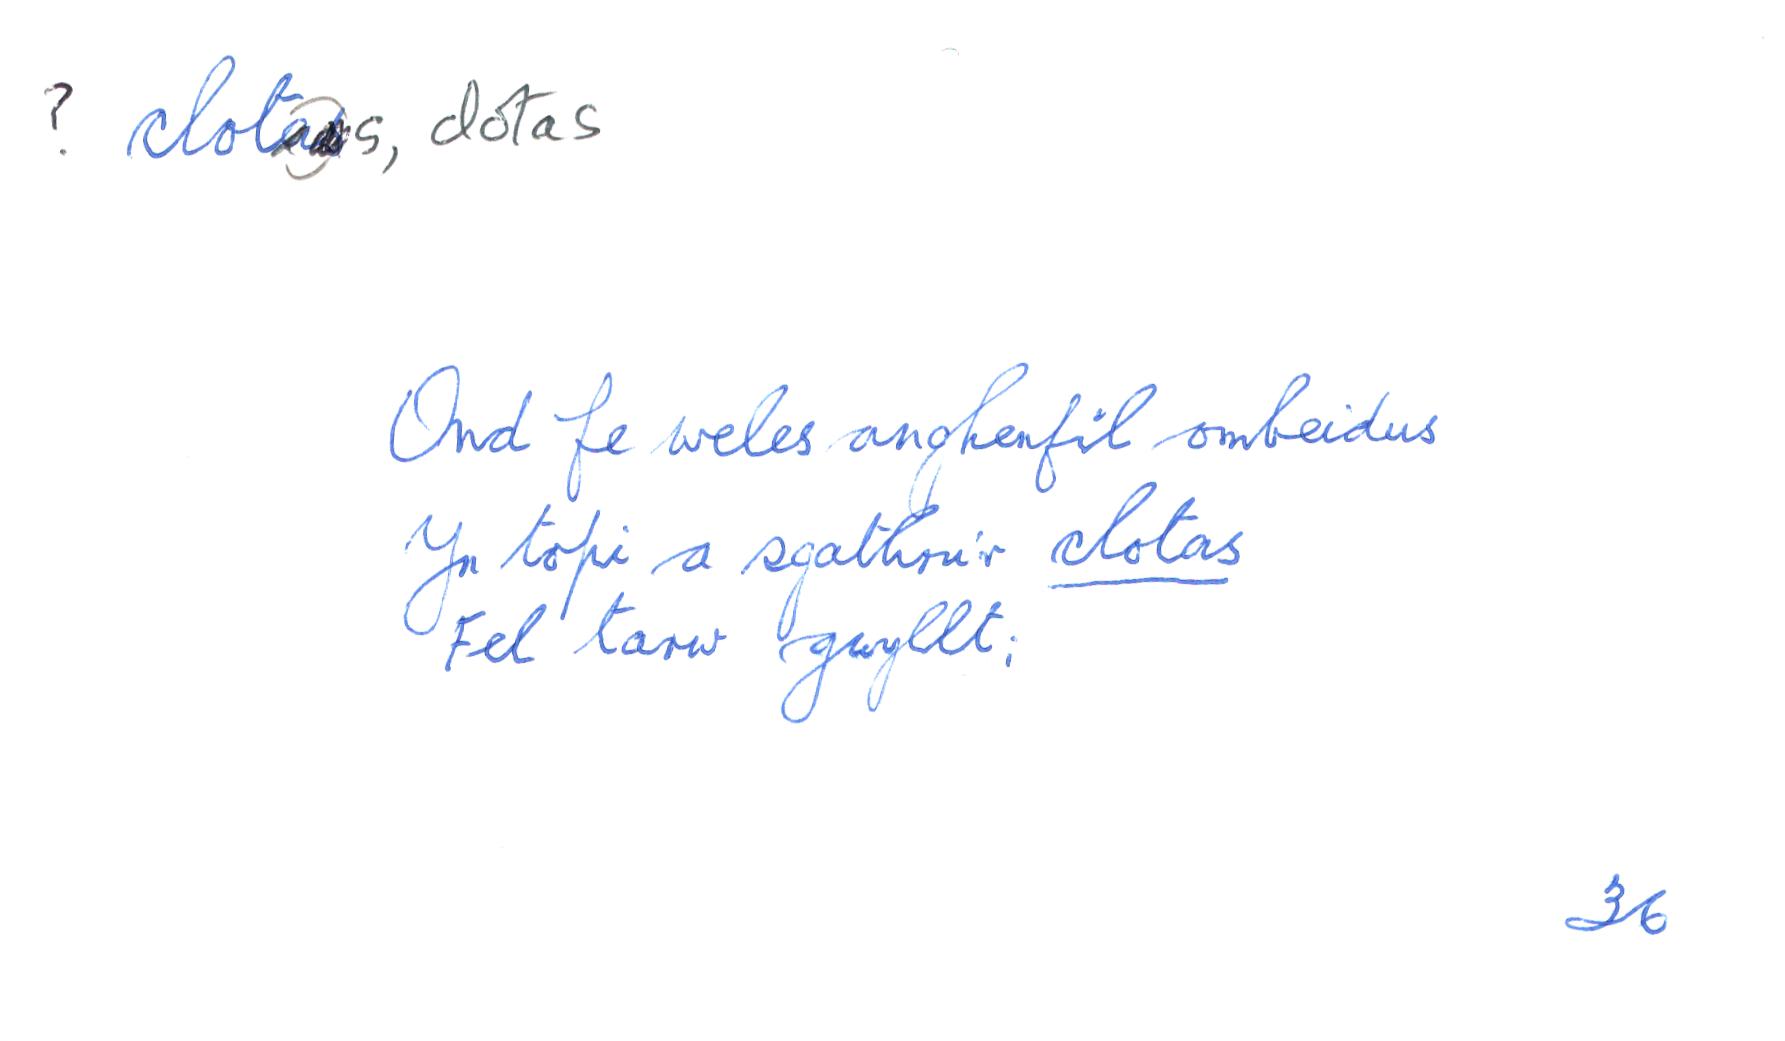 ? clotas, clotas
Ond fe weles anghenfil ombeidus
Yn topi a sgathru'r clotas
Fel tarw gwyllt;
36